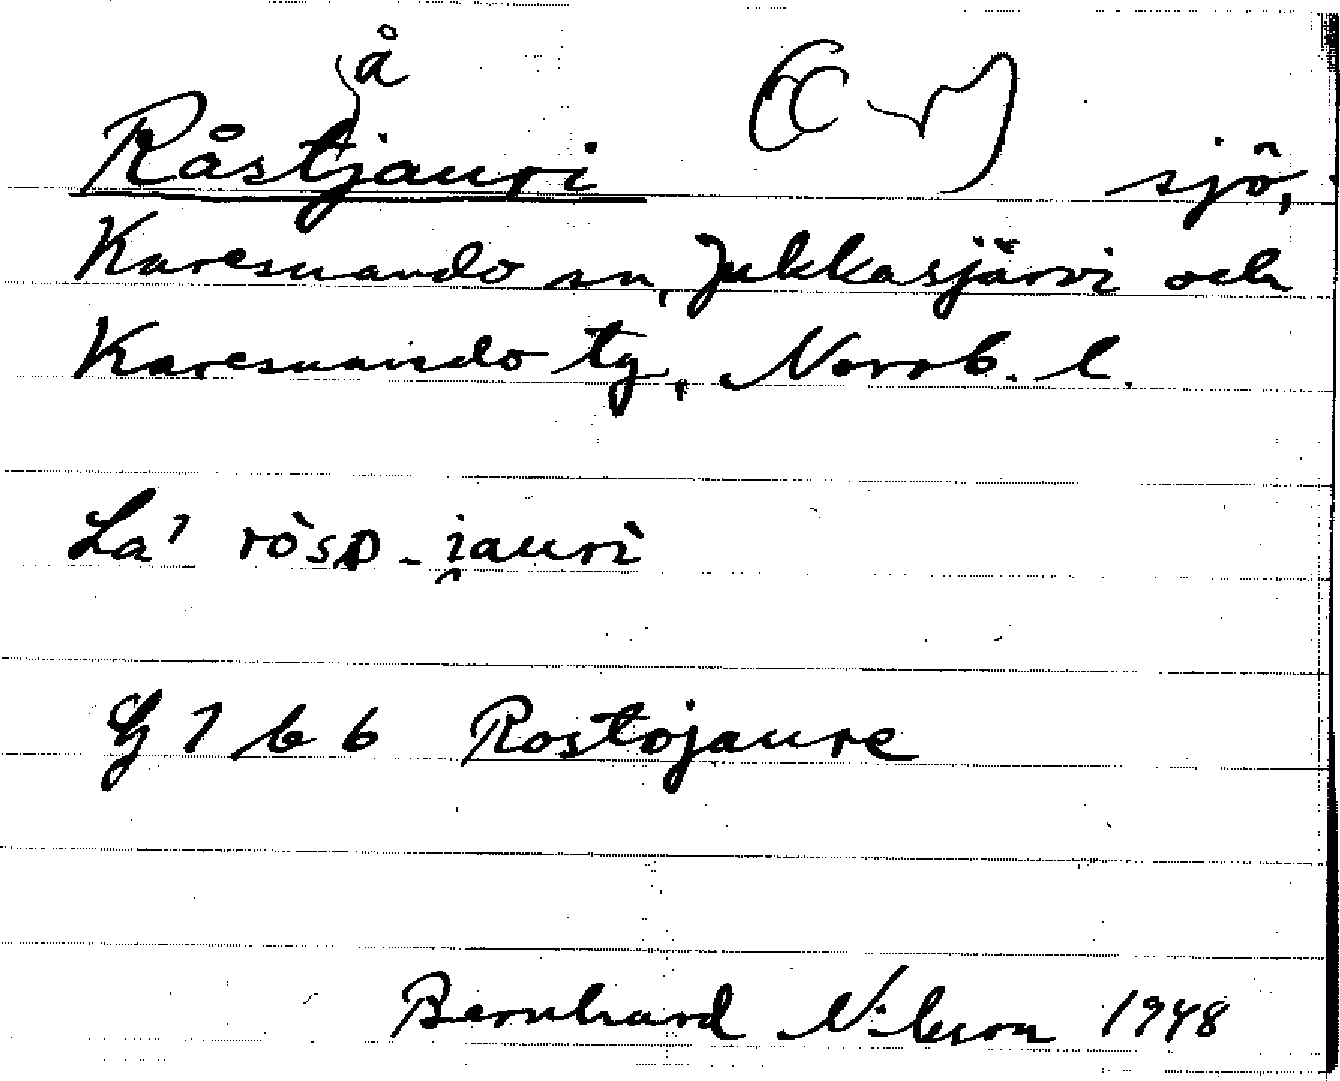 å
Råstjauri sjö,
Karesuando sn, Jukkasjärvi och
Karesuando tg, Norrb. l.
La'
G 1 b 6 Rostojaure
Bernhard Nilsson 1948